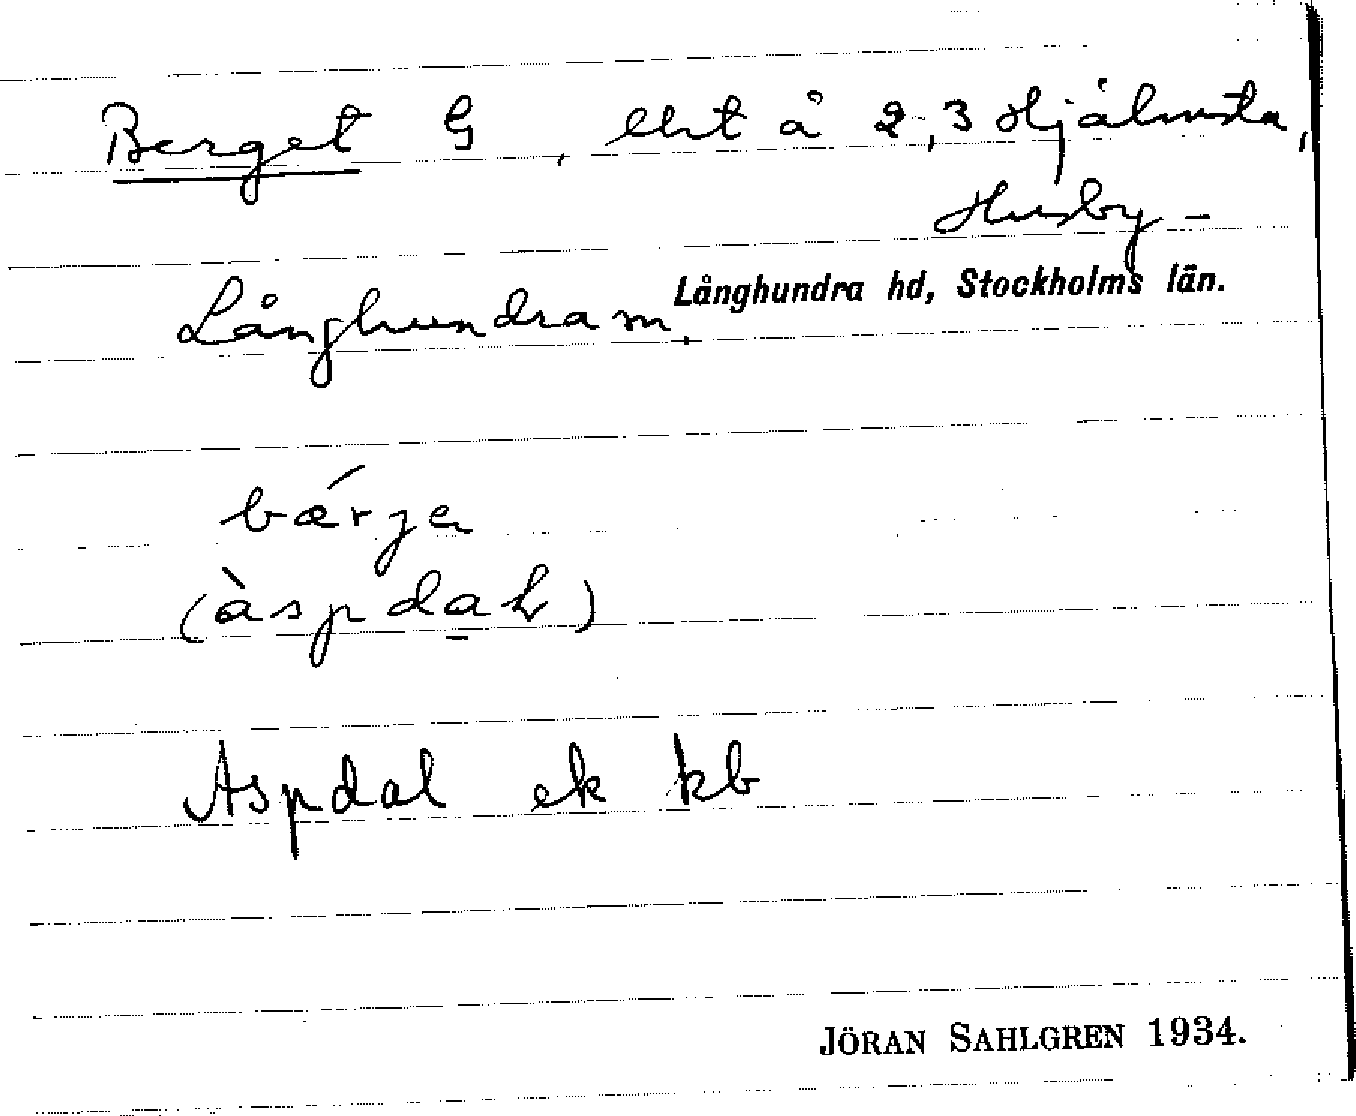 Berget G, lht å 2,3 Hjälmsta,
Husby-
Långhundra sn. Långhundra hd, Stockholms län.
bǽrjə
(àspdaḷ)
Aspdal ek kb
JÖRAN SAHLGREN 1934.